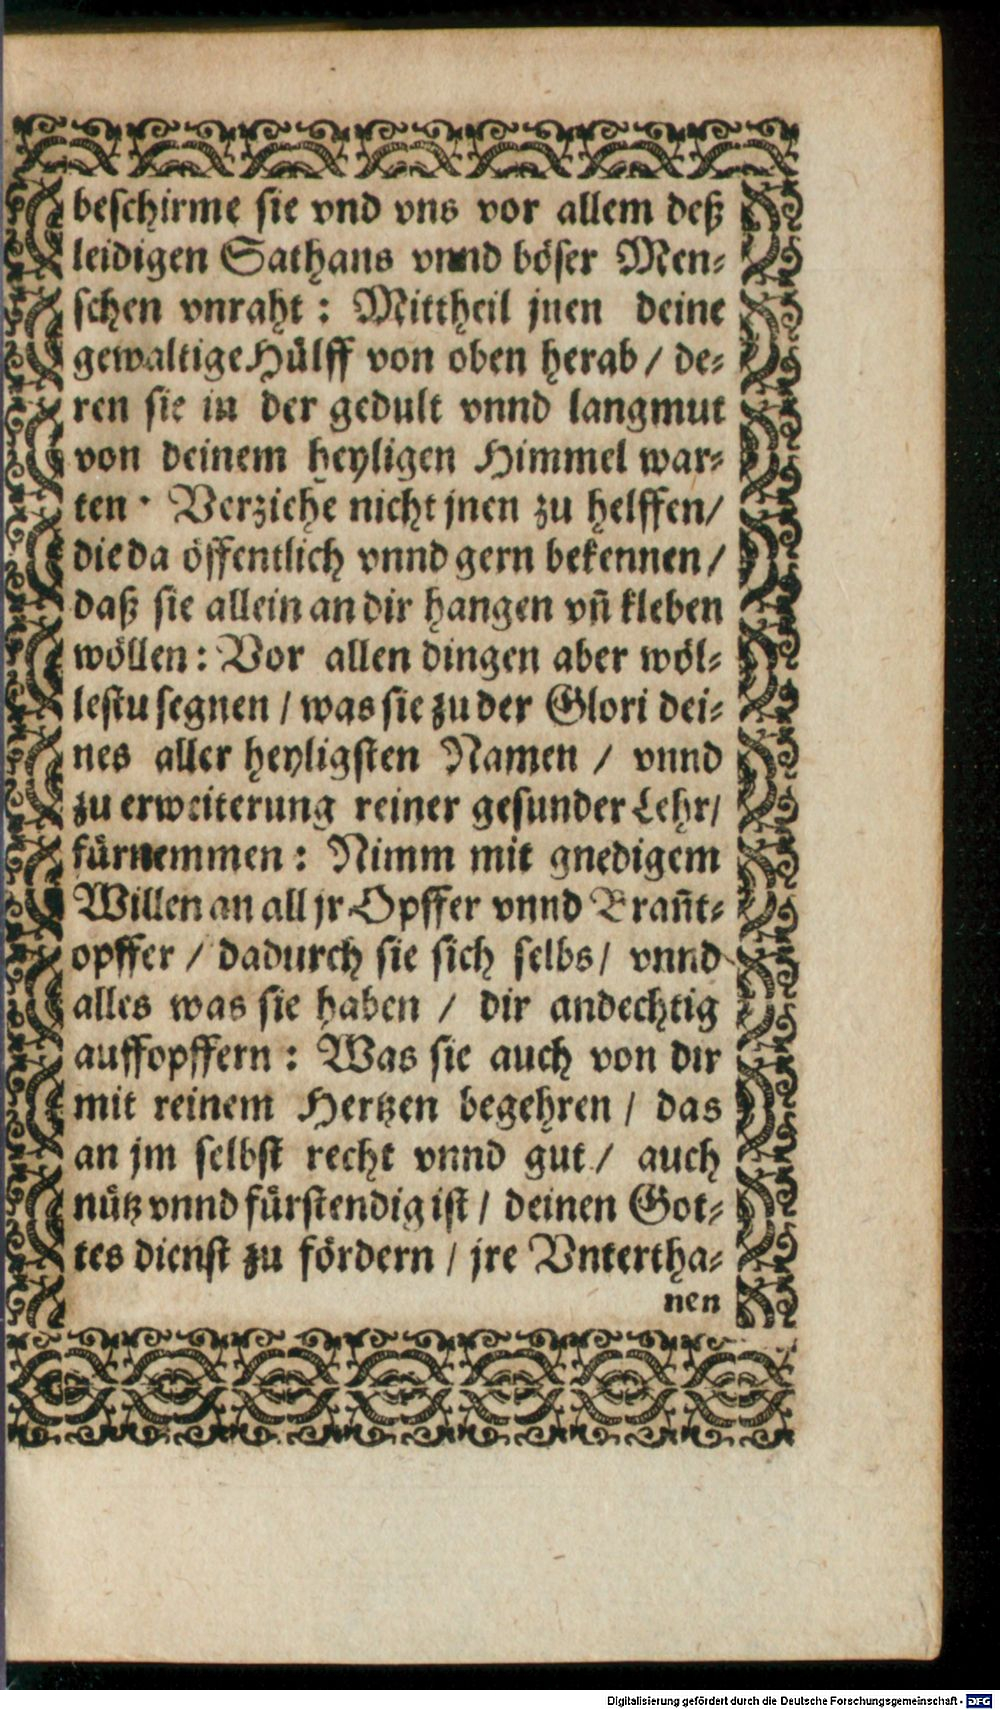 beschirme sie vnd vns vor allem deß
leidigen Sathans vnnd böser Men-
schen vnraht : Mittheil jnen deine
gewaltige Hülff von oben herab / de-
ren sie in der gedult vnnd langmut
von deinem heyligen Himmel war-
ten · Verziehe nicht jnen zu helffen/
die da öffentlich vnnd gern bekennen /
daß sie allein an dir hangen vñ kleben
wöllen : Vor allen dingen aber wöl-
lestu segnen / was sie zu der Glori dei-
nes aller heyligsten Namen / vnnd
zu erweiterung reiner gesunder Lehr/
fürnemmen : Nimm mit gnedigem
Willen an all jr Opffer vnnd Brañt-
opffer / dadurch sie sich selbs / vnnd
alles was sie haben / dir andechtig
auffopffern : Was sie auch von dir
mit reinem Hertzen begehren / das
an jm selbst recht vnnd gut / auch
nütz vnnd fürstendig ist / deinen Got-
tes dienst zu fördern / jre Vntertha-
nen
Digitalisierung gefördert durch die Deutsche Forschungsgemeinschaft - DFG